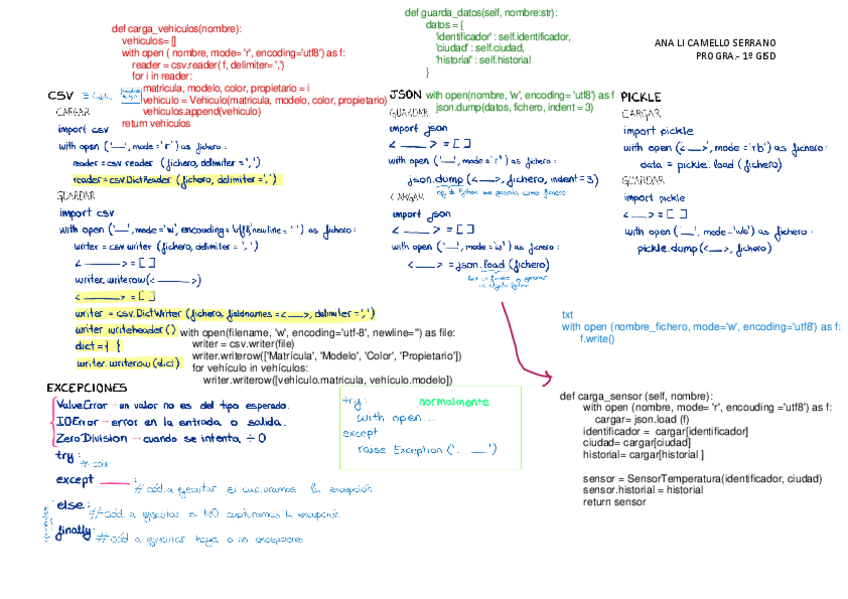 def carga_vehiculos(nombre):
vehiculos= []
with open ( nombre, mode= 'r', encoding='utf8') as f:
reader = csv.reader( f, delimiter= ',')
for i in reader:
matricula, modelo, color, propietario = i
vehiculo = Vehiculo(matricula, modelo, color, propietario)
vehiculos.append(vehiculo)
return vehiculos
def guarda_datos(self, nombre:str):
datos = {
'identificador' : self.identificador,
'ciudad' : self.ciudad,
'historial' : self.historial
}
with open(nombre, 'w', encoding= 'utf8') as f
json.dump(datos, fichero, indent = 3)
ANA LI CAMELLO SERRANO
PROGRA.- 1º GISD
CSV
CARGAR
import csv
with open ('___', mode = 'r') as fichero:
reader = csv reader (fichero, delimiter = ',')
reader = csv.DictReader (fichero, delimiter = ',')
GUARDAR
import csv
with open ('___', mode='w', encouding='utf8' newline=' ') as fichero:
writer = csv writer (fichero, delimiter = ',')
< ___ > = [ ]
writer. writerow(< ___ >)
< ___ > = [ ]
writer = csv. DictWriter (fichero, fieldnames = <___>, delimiter = ',')
writer writeheader ()
dict = { }
writer. writerow (dict)
with open(filename, 'w', encoding='utf-8', newline='') as file:
writer = csv.writer(file)
writer.writerow(['Matrícula', 'Modelo', 'Color', 'Propietario'])
for vehículo in vehículos:
writer.writerow([vehículo.matricula, vehículo.modelo])
JSON
GUARDAR
import json
< ___ > = [ ]
with open ('___', mode = 'r') as fichero:
json.dump (<___>, fichero, indent=3)
CARGAR
import json
< ___ > = [ ]
with open ('___', mode = 'w') as fichero:
< ___ > = json. load (fichero)
PICKLE
CARGAR
import pickle
with open (<___>', mode = 'rb') as fichero:
data = pickle. load (fichero)
GUARDAR
import pickle
<___> = [ ]
with open ('___', mode = 'wb') as fichero:
pickle.dump(<___>, fichero)
txt
with open (nombre_fichero, mode='w', encoding='utf8') as f:
f.write()
def carga_sensor (self, nombre):
with open (nombre, mode= 'r', encouding ='utf8') as f:
cargar= json.load (f)
identificador = cargar[identificador]
ciudad= cargar[ciudad]
historial= cargar[historial ]
sensor = SensorTemperatura(identificador, ciudad)
sensor.historial = historial
return sensor
EXCEPCIONES
ValueError → un valor no es del tipo esperado.
IOError → error en la entrada o salida.
ZeroDivision → cuando se intenta ÷ 0
try: # cod
except ______: # cód. a ejecutar si capturamos la excepción
else: # cód. a ejecutar si NO capturamos la excepción
finally: # cód a ejecutar haya o no excepciones
try: normalmente
with open...
except
raise Exception ('. ___')